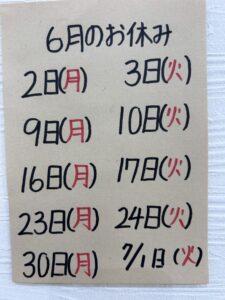 6月のお休み
2日(月) 3日(火)
9日(月) 10日(火)
16日(月) 17日(火)
23日(月) 24日(火)
30日(月) 7/1日(火)